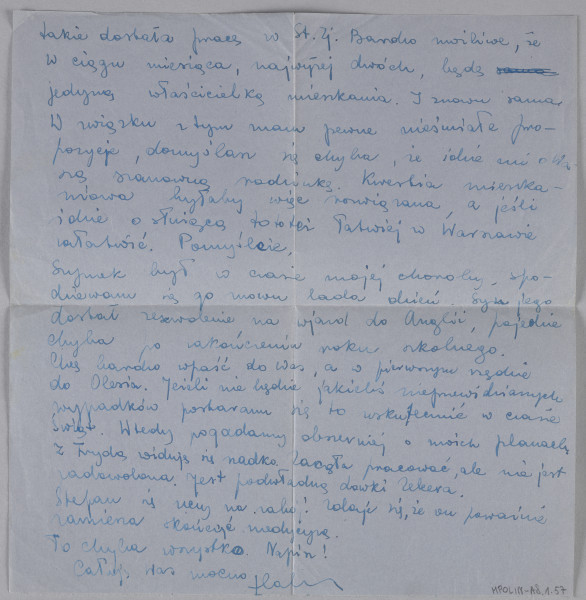 także dostała pracę w St. Zj. Bardzo możliwe, że
w ciągu miesiąca, najwyżej dwóch, będę
jedyną właścicielką mieszkania. I znowu sama.
W związku z tym mam pewne nieśmiałe pro-
pozycje, domyślasz się chyba, że idzie mi o Wa
szą szanowną rodzinkę. Kwestia mieszka-
niowa byłaby więc rozwiązana, a jeśli
idzie o służącą to też łatwiej w Warszawie
załatwić. Pomyślcie.
Szymek był w czasie mojej choroby, spo-
dziewam się go znowu lada dzień. Syn jego
dostał zezwolenie na wjazd do Anglii, pojedzie
chyba po zakończeniu roku szkolnego.
Chcę bardzo wpaść do Was, a w pierwszym rzędzie
do Olesia. Jeżeli nie będzie jakichś nieprzewidzianych
wypadków postaram się to uskutecznić w czasie
Świąt. Wtedy pogadamy obszerniej o moich planach.
Z Frydą widuję się rzadko. Zaczęła pracować, ale nie jest
zadowolona. Jest podwładną
Stefan się uczy na całego! Zdaje się, że on poważnie
zamierza skończyć medycynę.
To chyba wszystko. Napisz!
Całuję Was mocno
MPOLIN-A8.1.57